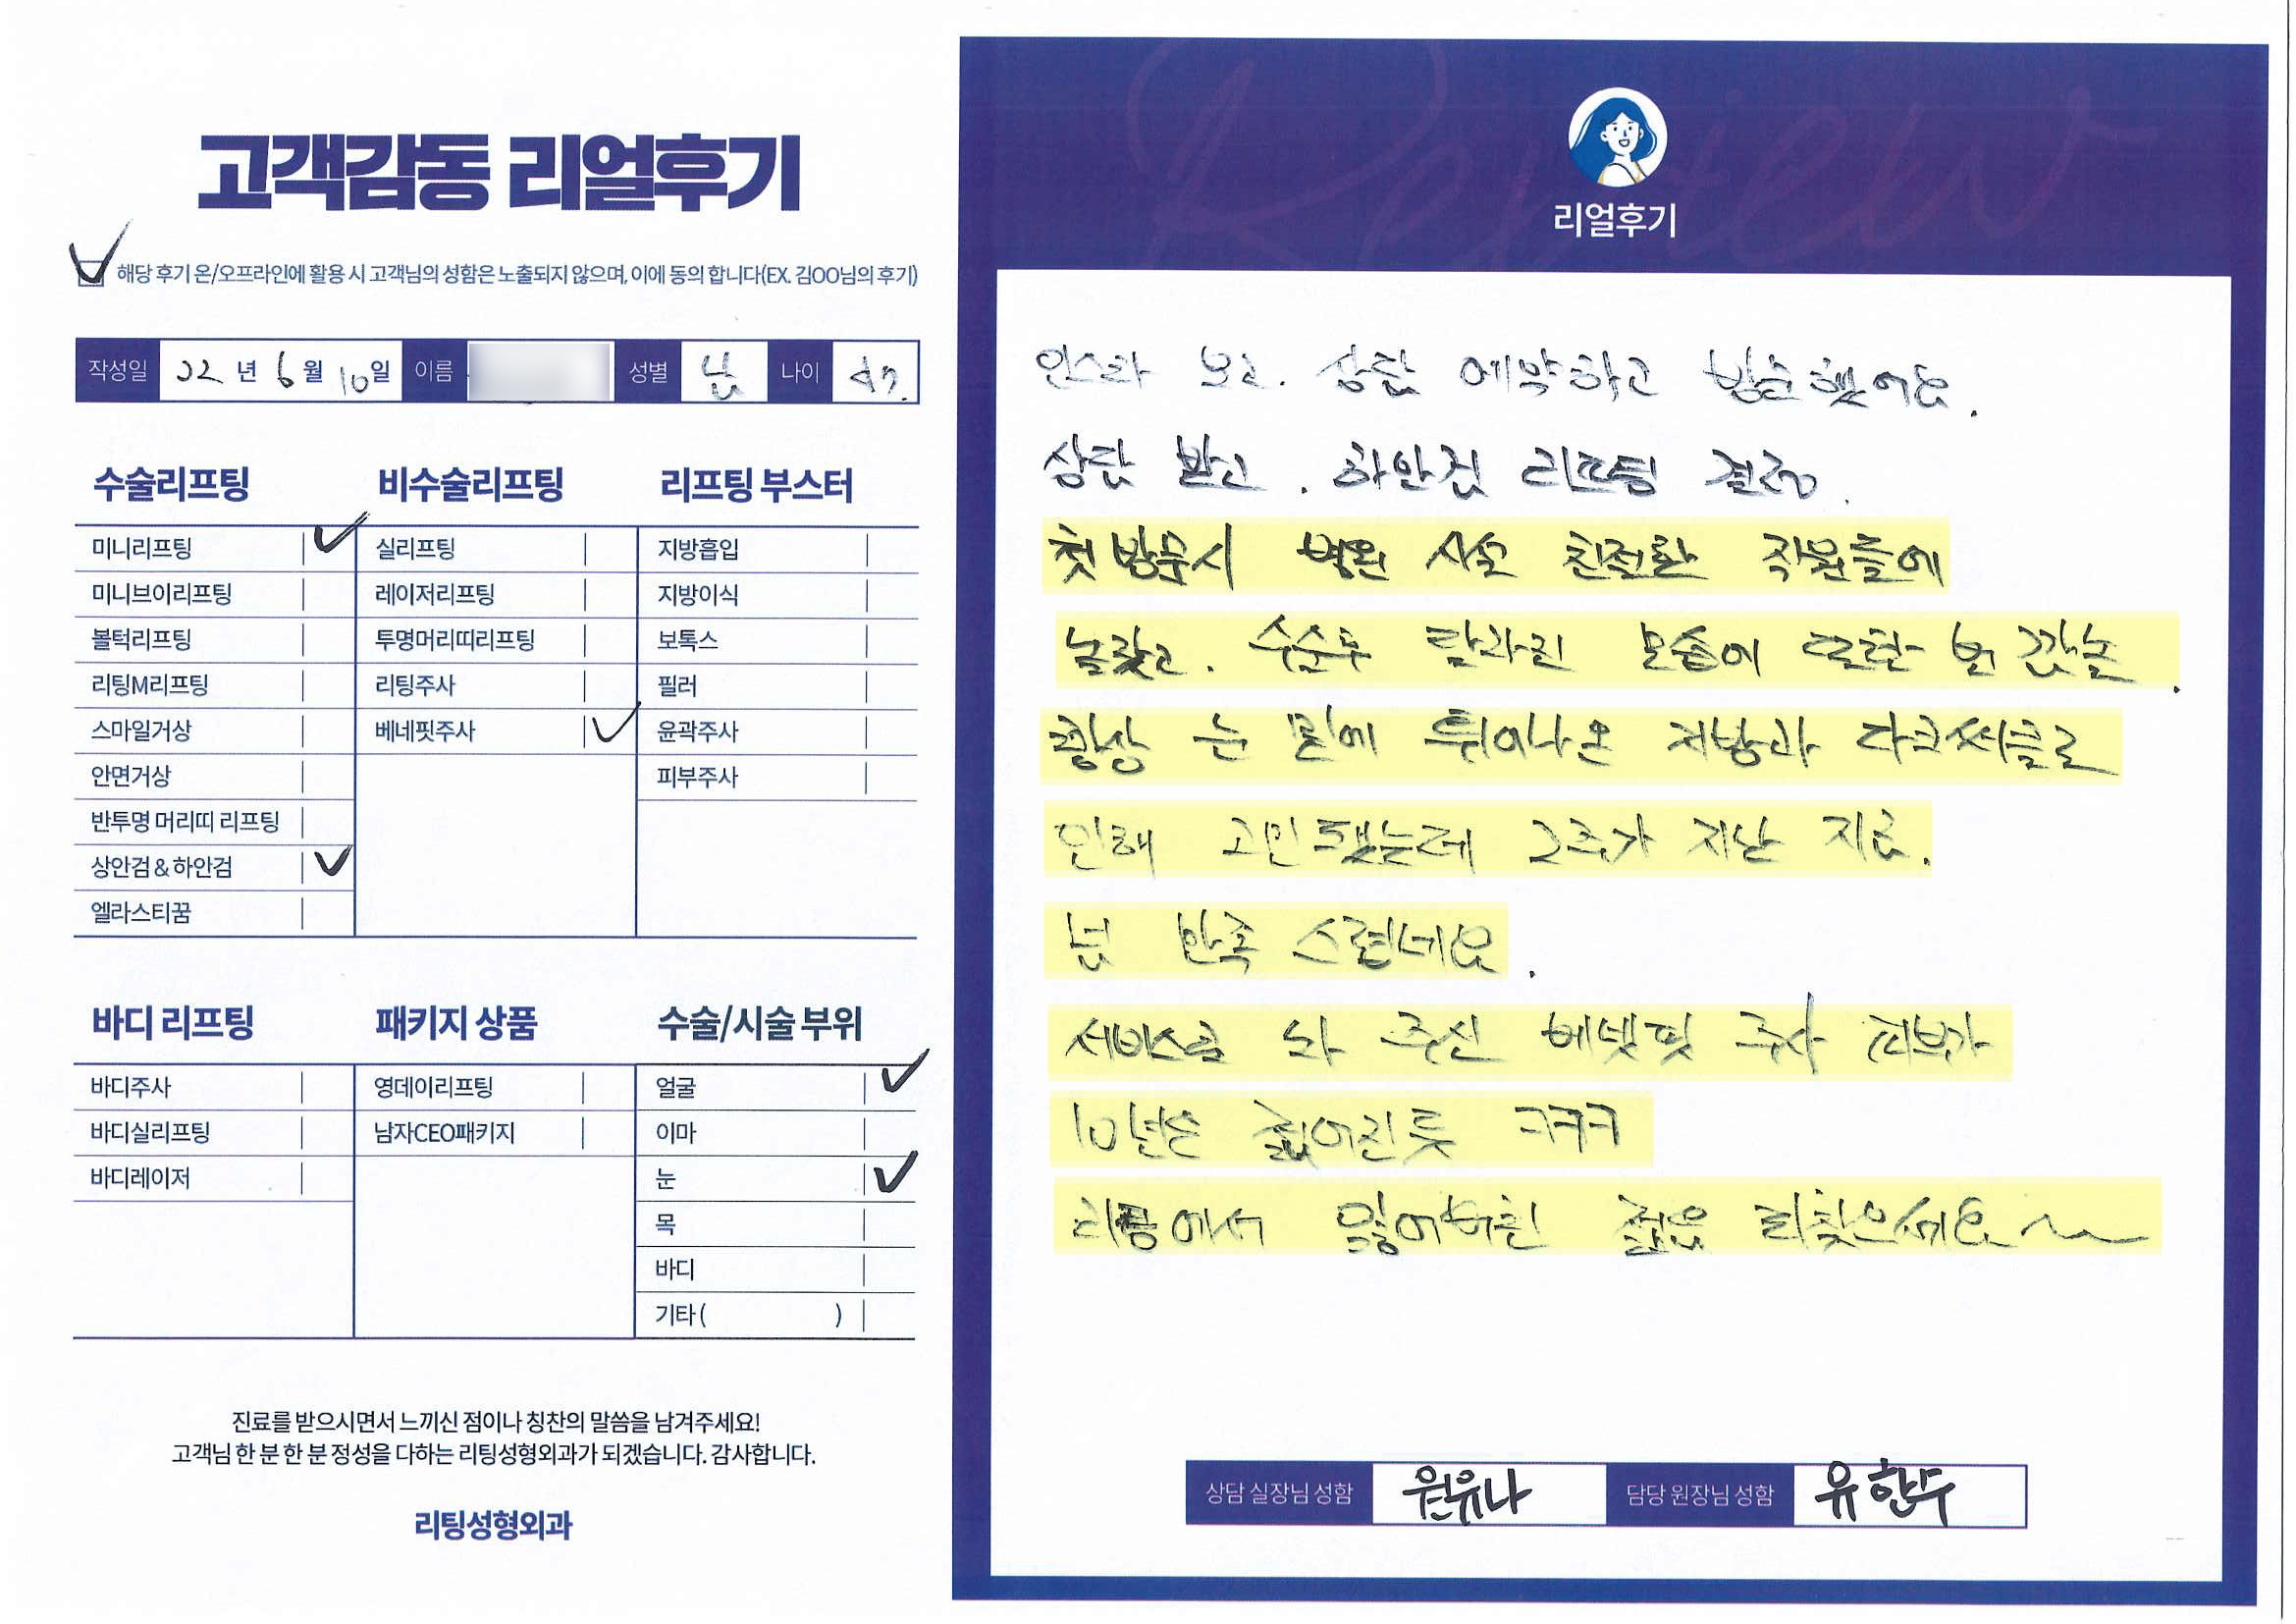 고객감동 리얼후기
해당 후기 온/오프라인에 활용 시 고객님의 성함은 노출되지 않으며, 이에 동의 합니다(EX. 김OO님의 후기)
작성일 22년 6월 10일 이름 성별 남 나이 47.
수술리프팅
미니리프팅
미니브이리프팅
볼턱리프팅
리팅M리프팅
스마일거상
안면거상
반투명 머리띠 리프팅
상안검&하안검
엘라스티꿈
비수술리프팅
실리프팅
레이저리프팅
투명머리띠리프팅
리팅주사
베네핏주사
리프팅 부스터
지방흡입
지방이식
보톡스
필러
윤곽주사
피부주사
바디 리프팅
바디주사
바디실리프팅
바디레이저
패키지 상품
영데이리프팅
남자CEO패키지
수술/시술 부위
얼굴
이마
눈
목
바디
기타( )
진료를 받으시면서 느끼신 점이나 칭찬의 말씀을 남겨주세요!
고객님 한 분 한 분 정성을 다하는 리팅성형외과가 되겠습니다. 감사합니다.
리팅성형외과
Review
리얼후기
인스타 보고. 상담 예약하고 방문했어요.
상담 받고. 하안검 리프팅 결정.
첫 방문시 병원 시설 친절한 직원들에
놀랐고. 수술후 달라진 모습에 또한번 깜놀.
항상 눈 밑에 튀어나온 지방과 다크써클로
인해 고민됐는데 2주가 지난 지금.
넘 만족 스럽네요.
서비스로 놔 주신 베넷핏 주사 피부가
10년은 젊어진듯 ㅋㅋㅋ
리팅에서 잃어버린 젊음 되찾으세요~
상담 실장님 성함 원유나 담당 원장님 성함 유한수